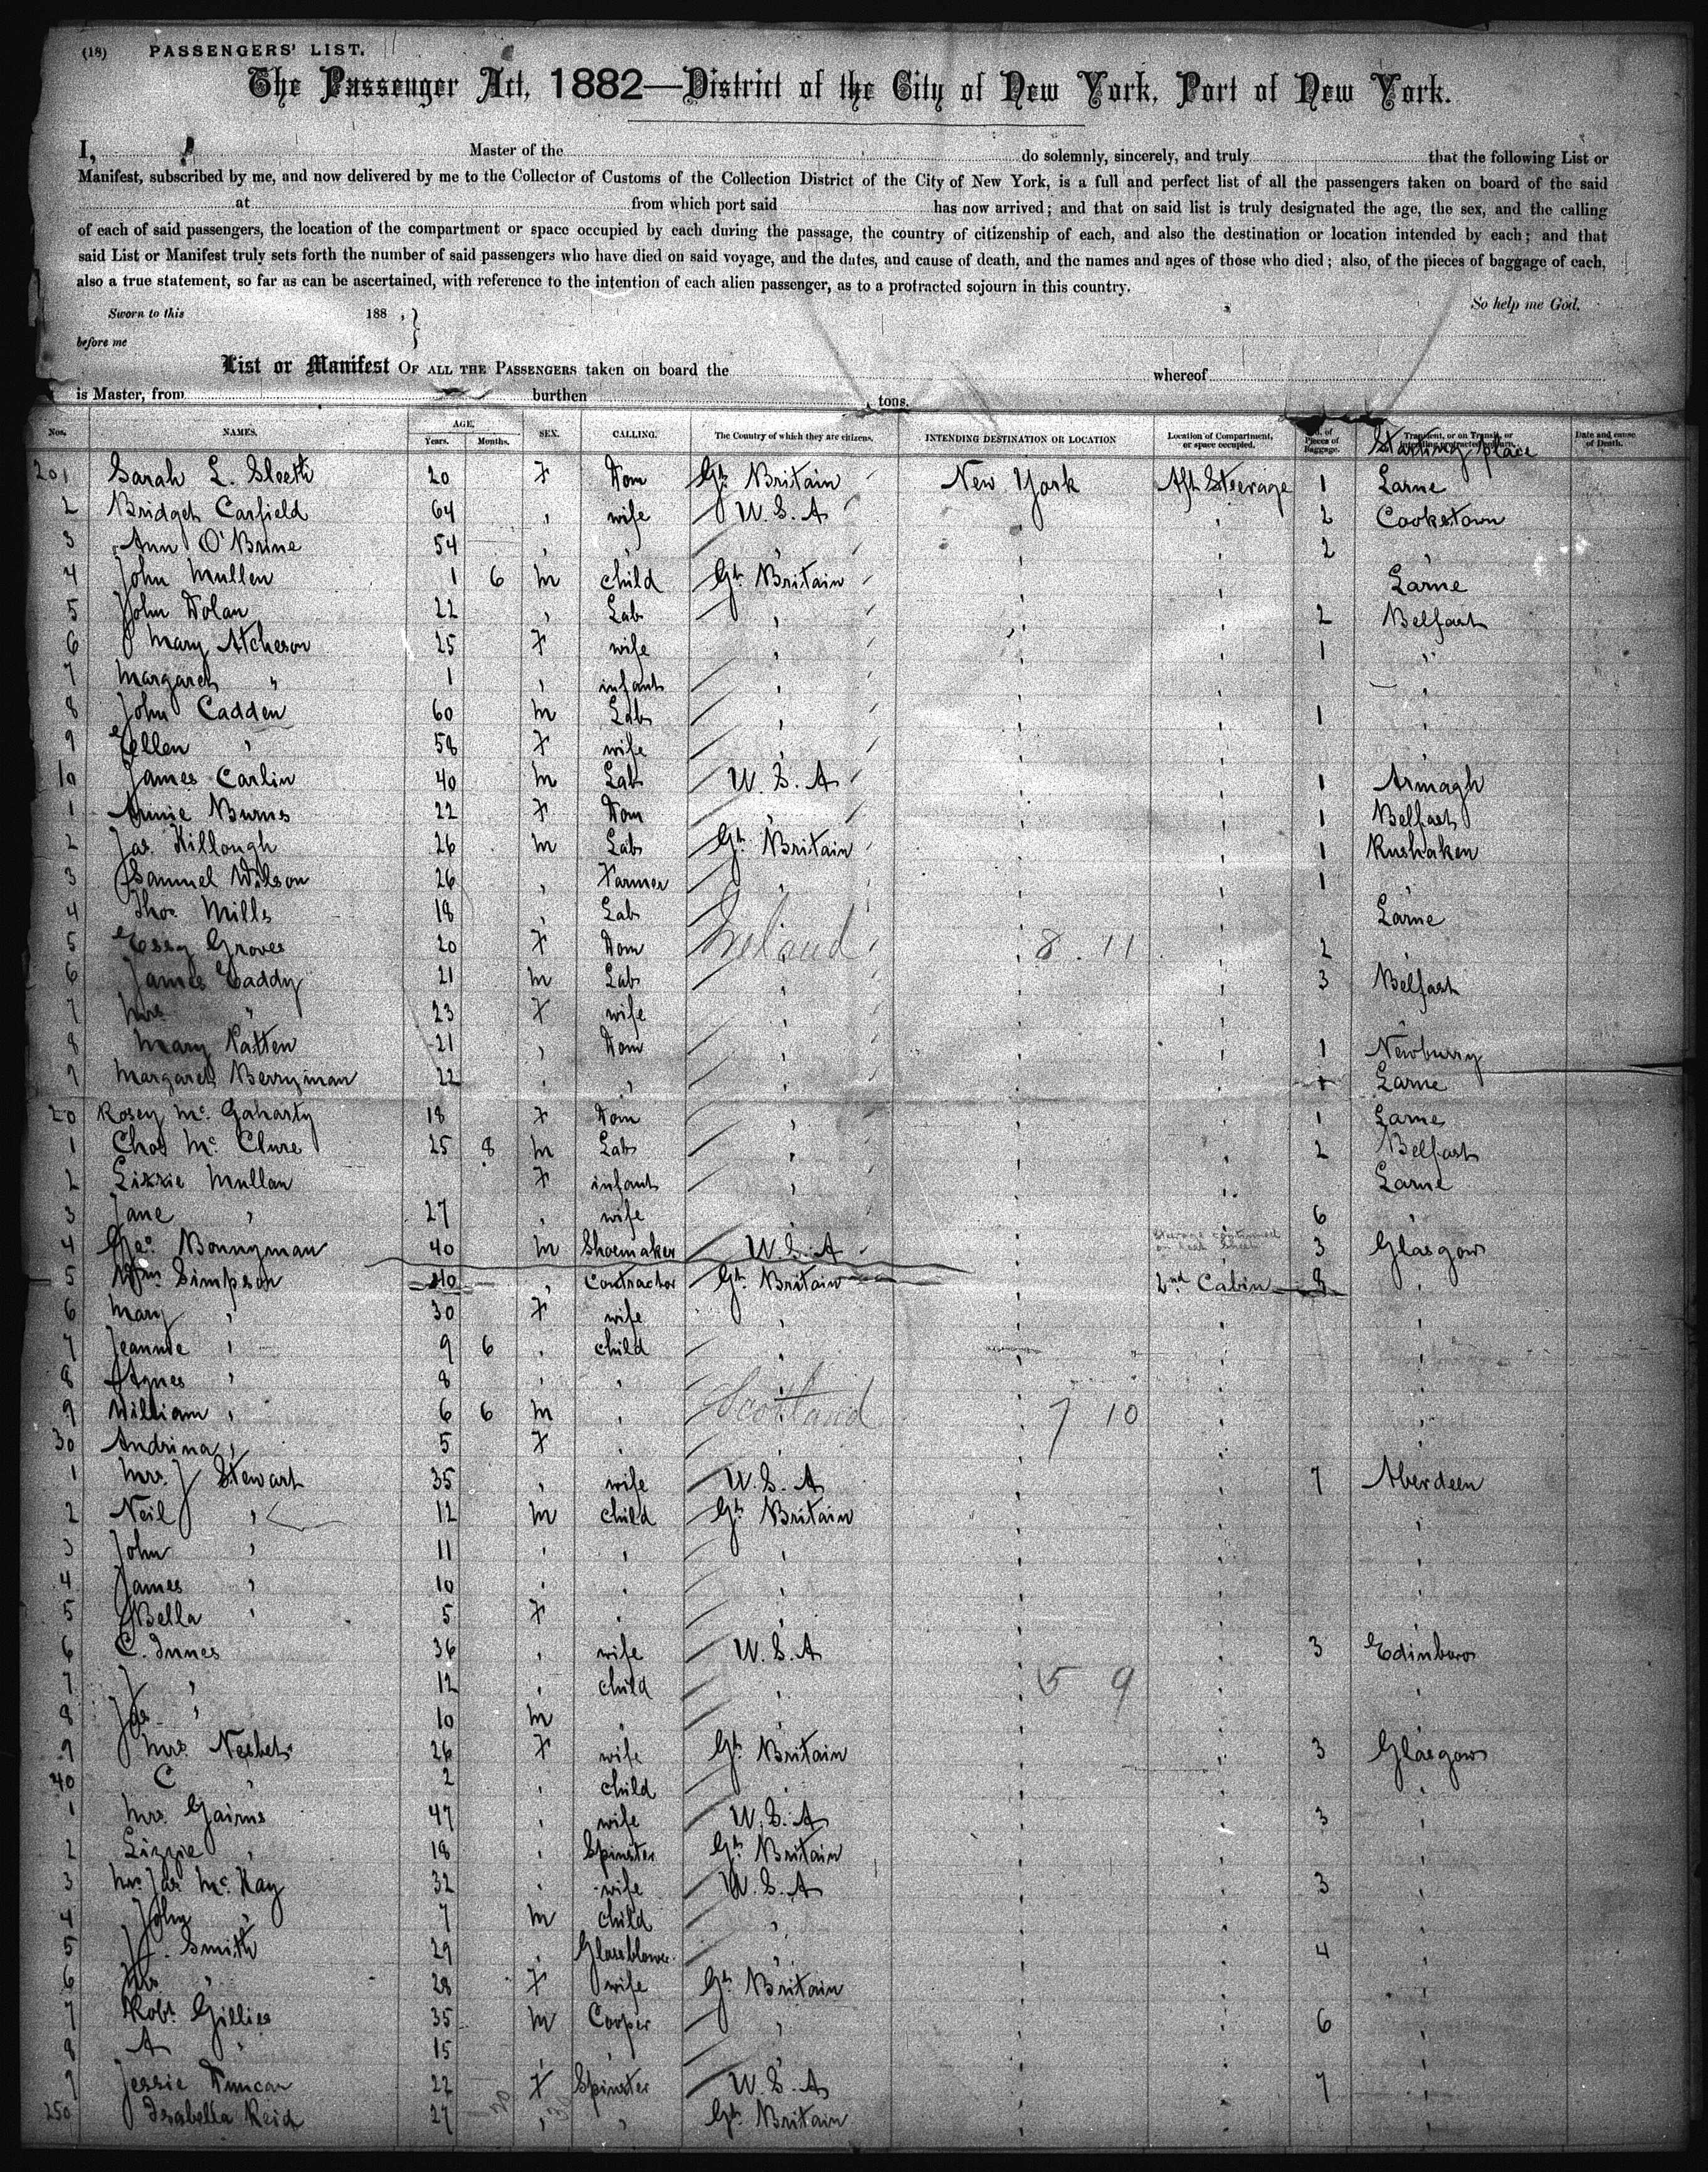 (18) PASSENGERS' LIST.
The Passenger Act, 1882—District of the City of New York, Port of New York.
I, Master of the do solemnly, sincerely, and truly that the following List or
Manifest, subscribed by me, and now delivered by me to the Collector of Customs of the Collection District of the City of New York, is a full and perfect list of all the passengers taken on board of the said
at from which port said has now arrived; and that on said list is truly designated the age, the sex, and the calling
of each of said passengers, the location of the compartment or space occupied by each during the passage, the country of citizenship of each, and also the destination or location intended by each; and that
said List or Manifest truly sets forth the number of said passengers who have died on said voyage, and the dates, and cause of death, and the names and ages of those who died; also, of the pieces of baggage of each,
also a true statement, so far as can be ascertained, with reference to the intention of each alien passenger, as to a protracted sojourn in this country.
So help me God.
Sworn to this 188 ,
before me
List or Manifest OF ALL THE PASSENGERS taken on board the whereof
is Master, from burthen tons.
Nos. NAMES. AGE. Years. Months. SEX. CALLING. The Country of which they are citizens. INTENDING DESTINATION OR LOCATION Location of Compartment, or space occupied. No. of Pieces of Baggage. Transient, or on Transit, or intending protracted sojourn. Date and cause of Death.
Starting place
201 Sarah L. Sleeth 20 F Dom Gt. Britain New York Aft Steerage 1 Larne
2 Bridget Carfield 64 " wife U.S.A " " 2 Cookstown
3 Ann O'Brine 54 " " " " " 2 "
4 John Mullen 1 6 M child Gt. Britain " " Larne
5 John Dolan 22 " Lab " " " 2 Belfast
6 Mary Atcheson 25 F wife " " " 1 "
7 Margaret " 1 " infant " " " — "
8 John Cadden 60 M Lab " " " 1 "
9 Ellen " 58 F wife " " " "
10 James Carlin 40 M Lab U.S.A " " 1 Armagh
1 Annie Burns 22 F Dom " " " 1 Belfast
2 Jas. Killough 26 M Lab Gt. Britain " " 1 Rushaken
3 Samuel Wilson 26 " Farmer " " " 1 "
4 Thos. Mills 18 " Lab " " " Larne
5 Essy Groves 20 F Dom Ireland " 8 . 11 " 2 "
6 James Caddy 21 M Lab " " " 3 Belfast
7 Mrs " 23 F wife " " " "
8 Mary Patten 21 " Dom " " " 1 Newburry
9 Margaret Berryman 22 " " " " " 1 Larne
20 Rosey Mc. Gaharty 18 F Dom " " " 1 Larne
1 Chas Mc. Clure 25 8 M Lab " " " 2 Belfast
2 Lizzie Mullan F infant " " " Larne
3 Jane " 27 " wife " " " 6 "
4 Geo. Bonnyman 40 M Shoemaker U.S.A " Steerage continued on next sheet 3 Glasgow
5 Wm. Simpson 40 " Contractor Gt. Britain " 2nd Cabin 8 "
6 Mary " 30 F wife " " " "
7 Jeannie " 9 6 " child " " " "
8 Agnes " 8 " " " " " "
9 William " 6 6 M " Scotland " 7 10 " "
30 Andrina " 5 F " " " " "
1 Mrs. J Stewart 35 " wife U.S.A " " 7 Aberdeen
2 Neil " 12 M child Gt. Britain " " "
3 John " 11 " " " " " "
4 James " 10 " " " " " "
5 Bella " 5 F " " " " "
6 C. Innes 36 " wife U.S.A " " 3 Edinboro
7 J " 12 " child " " 5 9 " "
8 Jas " 10 M " " " " "
9 Mrs. Nesbet 26 F wife Gt. Britain " " 3 Glasgow
40 C " 2 " child " " " "
1 Mrs. Gairns 47 " wife U.S.A " " 3 "
2 Lizzie " 18 " Spinster Gt. Britain " " "
3 Mrs Jas Mc. Kay 32 " wife U.S.A " " 3 "
4 John " 7 M child " " " "
5 J. Smith 29 " Glassblower " " " 4 "
6 Mrs " 28 F wife Gt. Britain " " "
7 Robt. Gillies 35 M Cooper " " " 6 "
8 A " 15 " " " " " "
9 Jessie Duncan 22 F Spinster U.S.A " " 7 "
250 Isabella Reid 27 " " Gt. Britain " " "